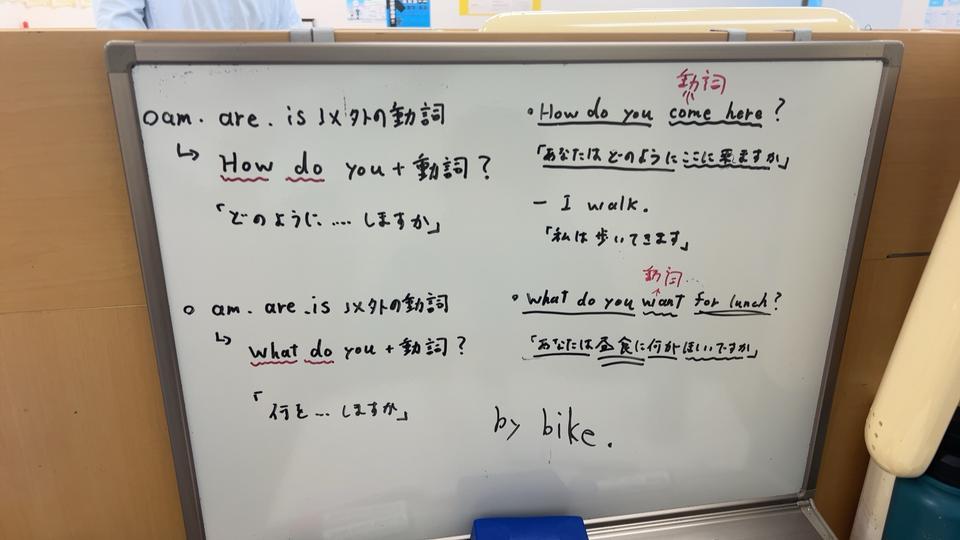 ○am. are. is 以外の動詞
↳ How do you + 動詞 ?
「どのように .... しますか」
○ am. are. is 以外の動詞
↳ what do you + 動詞 ?
「何を ... しますか」
動詞
• How do you come here ?
「あなたは どのように ここに 来ますか」
− I walk.
「私は 歩いてきます」
動詞
• what do you want for lunch ?
「あなたは 昼食に 何が ほしいですか」
by bike.